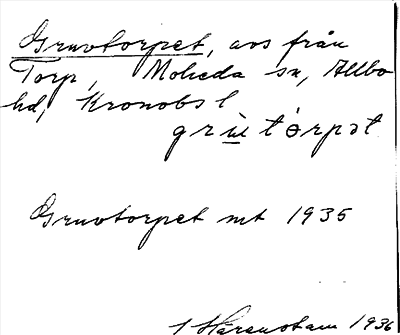 Gruvtorpet, avs från
Torp, Moheda sn, Allbo
hd, Kronobs l
grùt órpət
Gruvtorpet mt 1935
1936